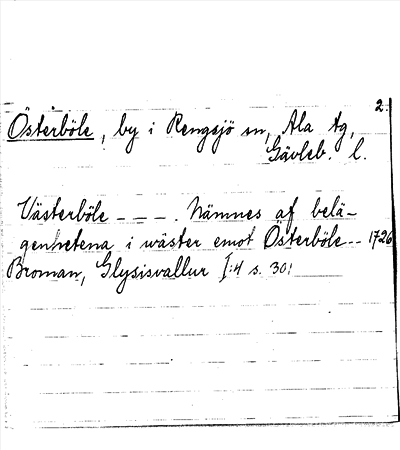 2.
Österböle, by i Rengsjö sn, Ala tg,
Gävleb. l.
Västerböle - - - . Nämnes af belä-
genhetena i wäster emot Österböle - - 1726
Broman, Glysisvallur I:4 s. 30!